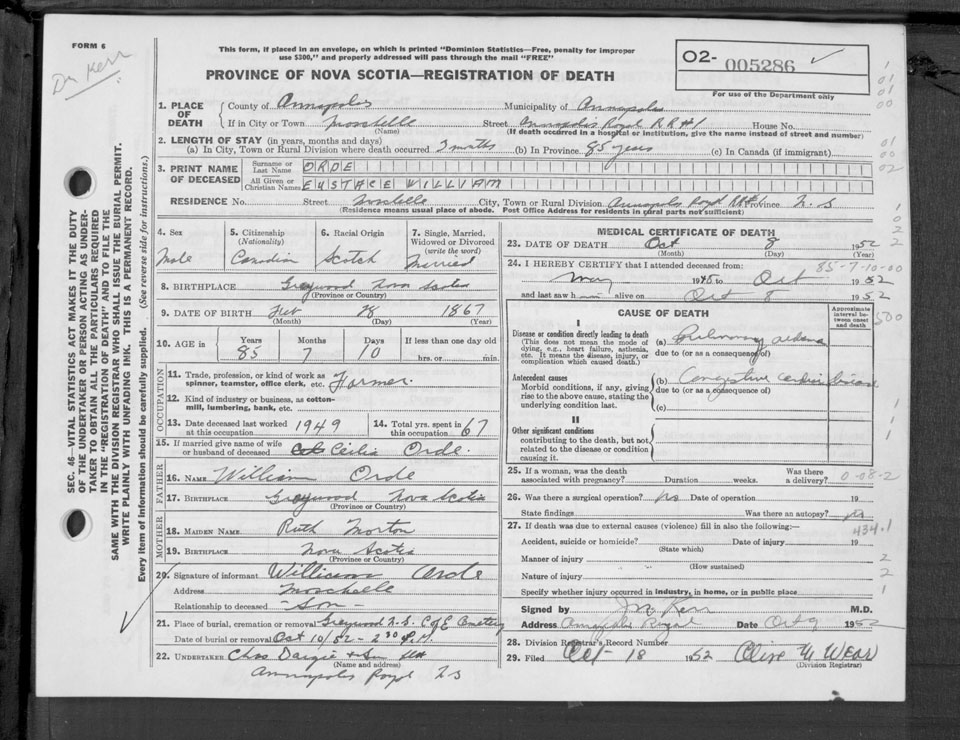 FORM 6
Dr Kerr
This form, if placed in an envelope, on which is printed "Dominion Statistics—Free, penalty for improper
use $300," and properly addressed will pass through the mail "FREE"
O2- 005286
For use of the Department only
PROVINCE OF NOVA SCOTIA—REGISTRATION OF DEATH
SEC. 46—VITAL STATISTICS ACT MAKES IT THE DUTY
OF THE UNDERTAKER OR PERSON ACTING AS UNDER-
TAKER TO OBTAIN ALL THE PARTICULARS REQUIRED
IN THE "REGISTRATION OF DEATH" AND TO FILE THE
SAME WITH THE DIVISION REGISTRAR WHO SHALL ISSUE THE BURIAL PERMIT.
WRITE PLAINLY WITH UNFADING INK. THIS IS A PERMANENT RECORD.
Every item of Information should be carefully supplied. (See reverse side for instructions.)
1. PLACE OF DEATH
County of Annapolis Municipality of Annapolis
If in City or Town Moschelle Street Annapolis Royal R R #1 House No.
(Name) (If death occurred in a hospital or institution, give the name instead of street and number)
2. LENGTH OF STAY (in years, months and days)
(a) In City, Town or Rural Division where death occurred 3 months (b) In Province 85 years (c) In Canada (if immigrant)
3. PRINT NAME OF DECEASED
Surname or Last Name ORDE
All Given or Christian Names EUSTACE WILLIAM
RESIDENCE No. Street Moschelle City, Town or Rural Division Annapolis Royal RR#1 Province N.S
(Residence means usual place of abode. Post Office Address for residents in rural parts not sufficient)
4. Sex
Male
5. Citizenship
(Nationality)
Canadian
6. Racial Origin
Scotch
7. Single, Married,
Widowed or Divorced
(write the word)
Married
8. BIRTHPLACE Greywood Nova Scotia
(Province or Country)
9. DATE OF BIRTH Feb 28 1867
(Month) (Day) (Year)
10. AGE in
Years Months Days If less than one day old
85 7 10 hrs. or min.
OCCUPATION
11. Trade, profession, or kind of work as
spinner, teamster, office clerk, etc. Farmer.
12. Kind of industry or business, as cotton-
mill, lumbering, bank, etc.
13. Date deceased last worked
at this occupation 1949
14. Total yrs. spent in
this occupation 67
15. If married give name of wife
or husband of deceased Ceilia Orde.
FATHER
16. NAME William Orde
17. BIRTHPLACE Greywood Nova Scotia
(Province or Country)
MOTHER
18. MAIDEN NAME Ruth Morton
19. BIRTHPLACE Nova Scotia
(Province or Country)
20. Signature of informant William Orde
Address Moschelle
Relationship to deceased -Son-
21. Place of burial, cremation or removal Greywood N.S. C of E Cemetery
Date of burial or removal Oct 10/52 - 2 30 P.M.
22. UNDERTAKER Chas Dargie & Son
(Name and address)
Annapolis Royal N S
MEDICAL CERTIFICATE OF DEATH
23. DATE OF DEATH Oct 8 1952
(Month) (Day) (Year)
85-7-10-00
24. I HEREBY CERTIFY that I attended deceased from:
May 1945 to Oct 1952
and last saw h im alive on Oct 8 1952
CAUSE OF DEATH
Approximate
interval be-
tween onset
and death
I
Disease or condition directly leading to death
(This does not mean the mode of
dying, e.g., heart failure, asthenia,
etc. It means the disease, injury, or
complication which caused death.)
(a) Pulmonary edema
due to (or as a consequence of)
Antecedent causes
Morbid conditions, if any, giving
rise to the above cause, stating the
underlying condition last.
(b) Congestive
due to (or as a consequence of)
(c)
II
Other significant conditions
contributing to the death, but not
related to the disease or condition
causing it.
25. If a woman, was the death
associated with pregnancy? Duration weeks. Was there
a delivery? 0-08-2
26. Was there a surgical operation? No Date of operation 19
State findings Was there an autopsy? no
434.1
27. If death was due to external causes (violence) fill in also the following:—
Accident, suicide or homicide? Date of injury 19
(State which)
Manner of injury
(How sustained)
Nature of injury
Specify whether injury occurred in industry, in home, or in public place
Signed by J M Kerr M.D.
Address Annapolis Royal Date Oct 9 1952
28. Division Registrar's Record Number
29. Filed Oct- 18 1952 Clive W WEAR
(Division Registrar)